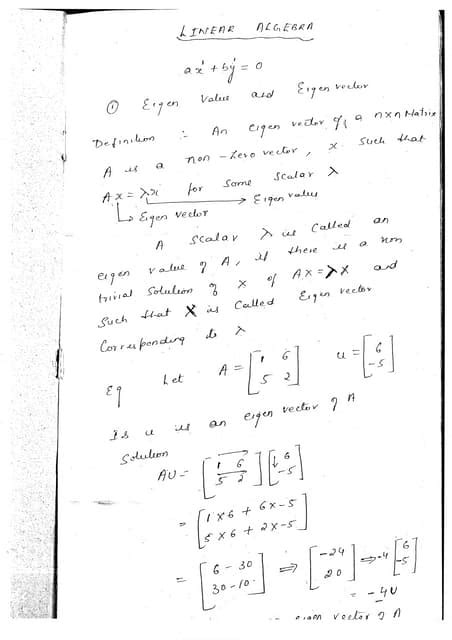 LINEAR ALGEBRA
ax' + by' = 0
① Eigen Value and Eigen vector
Definition : An eigen vector of a nxn Matrix
A is a non-zero vector, x such that
Ax = λx for some scalar λ
Eigen value
Eigen vector
A scalar λ is called an
eigen value of A, if there is a non
trivial solution of x of AX = λX and
Such that X is called Eigen vector
Corresponding to λ
Eg Let A = [1 6 5 2] u = [6 -5]
Is u is an eigen vector of A
Solution
AU = [1 6 5 2] [6 -5]
= [1×6 + 6×-5 5×6 + 2×-5]
= [6 - 30 30 - 10] ⇒ [-24 20] ⇒ -4 [6 -5]
= -4U
eigen vector of A